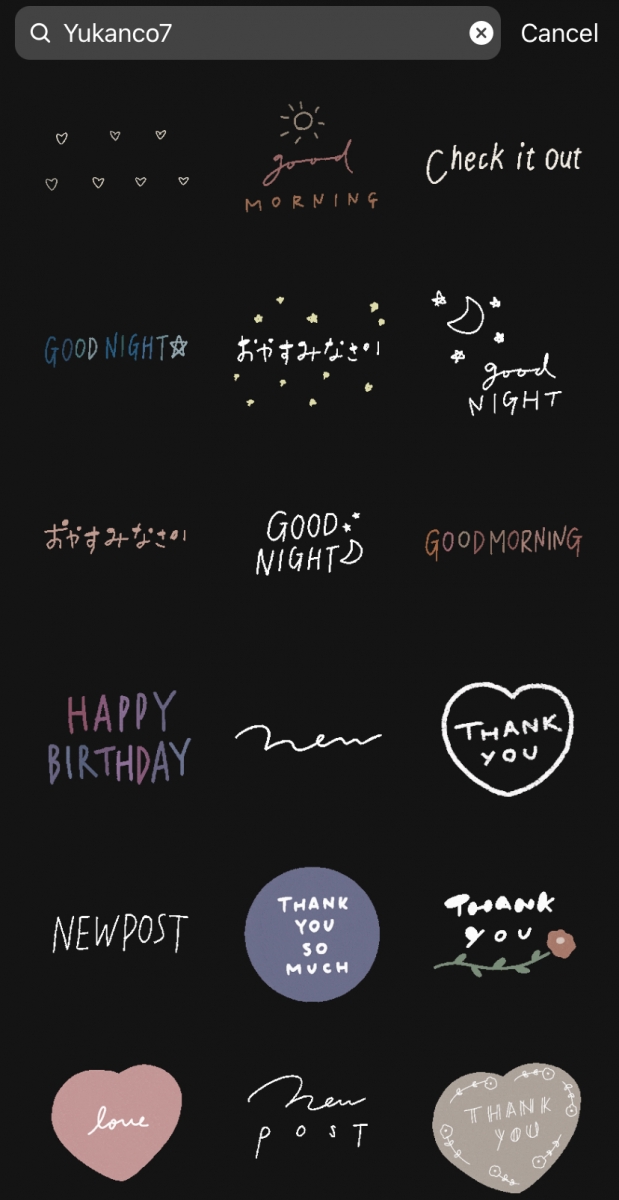 Yukanco7
Cancel
good
MORNING
Check it out
GOOD NIGHT
おやすみなさい
good
NIGHT
おやすみなさい
GOOD
NIGHT
GOODMORNING
HAPPY
BIRTHDAY
new
THANK
YOU
NEWPOST
THANK
YOU
SO
MUCH
THANK
YOU
love
new
POST
THANK
YOU